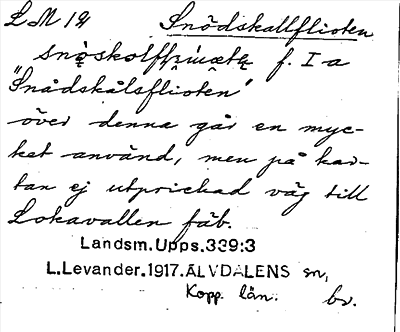 L M 12 Snödskallflioten
f. I-a
"Snådskålsflioten"
över denna går en myc-
ket använd, men på kar-
tan ej utprickad väg till
Lokavallen fäb.
Landsm.Upps.339:3
L.Levander.1917.ÄLVDALENS sn,
Kopp. län. bv.